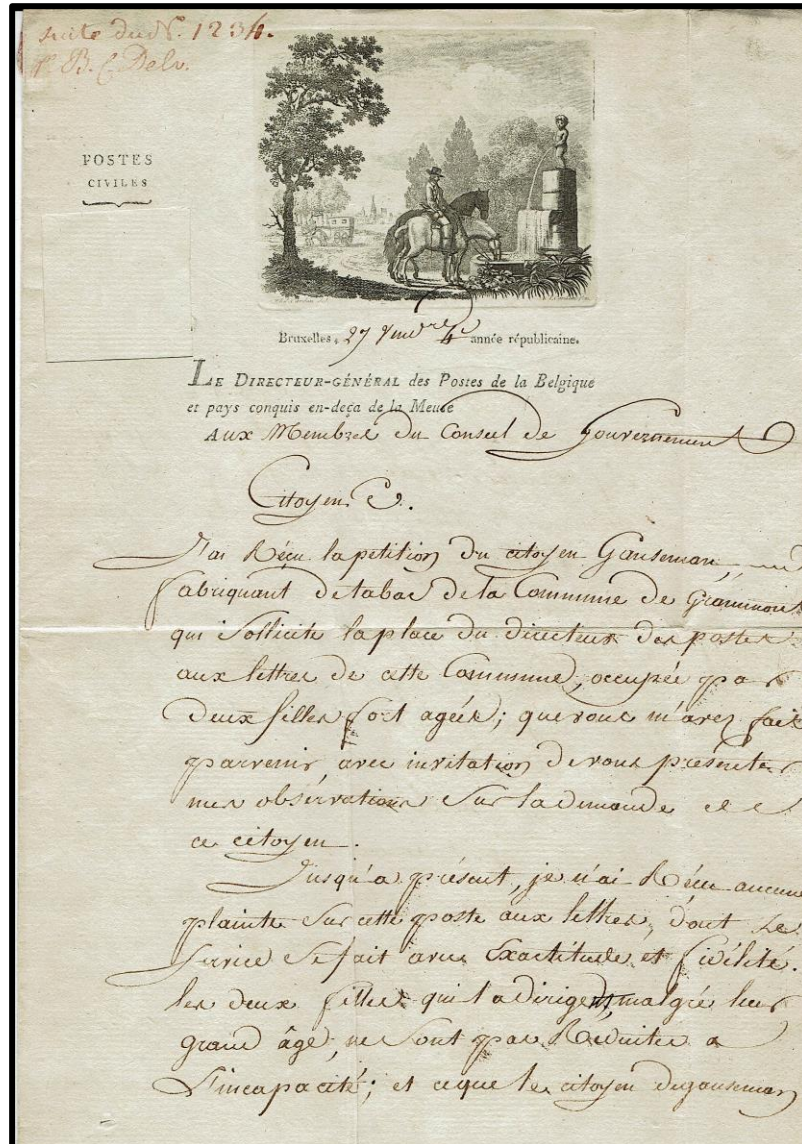 suite du N.º 1234.
POSTES
CIVILES
Bruxelles, 27 Vend.re 4e année républicaine.
LE DIRECTEUR-GÉNÉRAL des Postes de la Belgique
et pays conquis en-deça de la Meuse
Aux Membres du Conseil de Gouvernement
Citoyens.
J'ai Réçu la petition du citoyen Ganseman
fabriquant de tabac de la Commune de Grammont
qui Sollicite la place du directeur des postes
aux lettres de cette Commune, occupée par
deux filles fort ageés; que vous m'avez fait
parvenir, avec invitation de vous présenter
mes observations Sur la demande de
ce citoyen.
Jusqu'a présent, je n'ai Réçu aucune
plainte Sur cette poste aux lettres, dont le
Service Se fait avec Exactitude et fidélité.
les deux filles qui la dirigent, malgré leur
grand âge, ne Sont pas Réduites a
L'incapacité; et ce que le citoyen deganseman